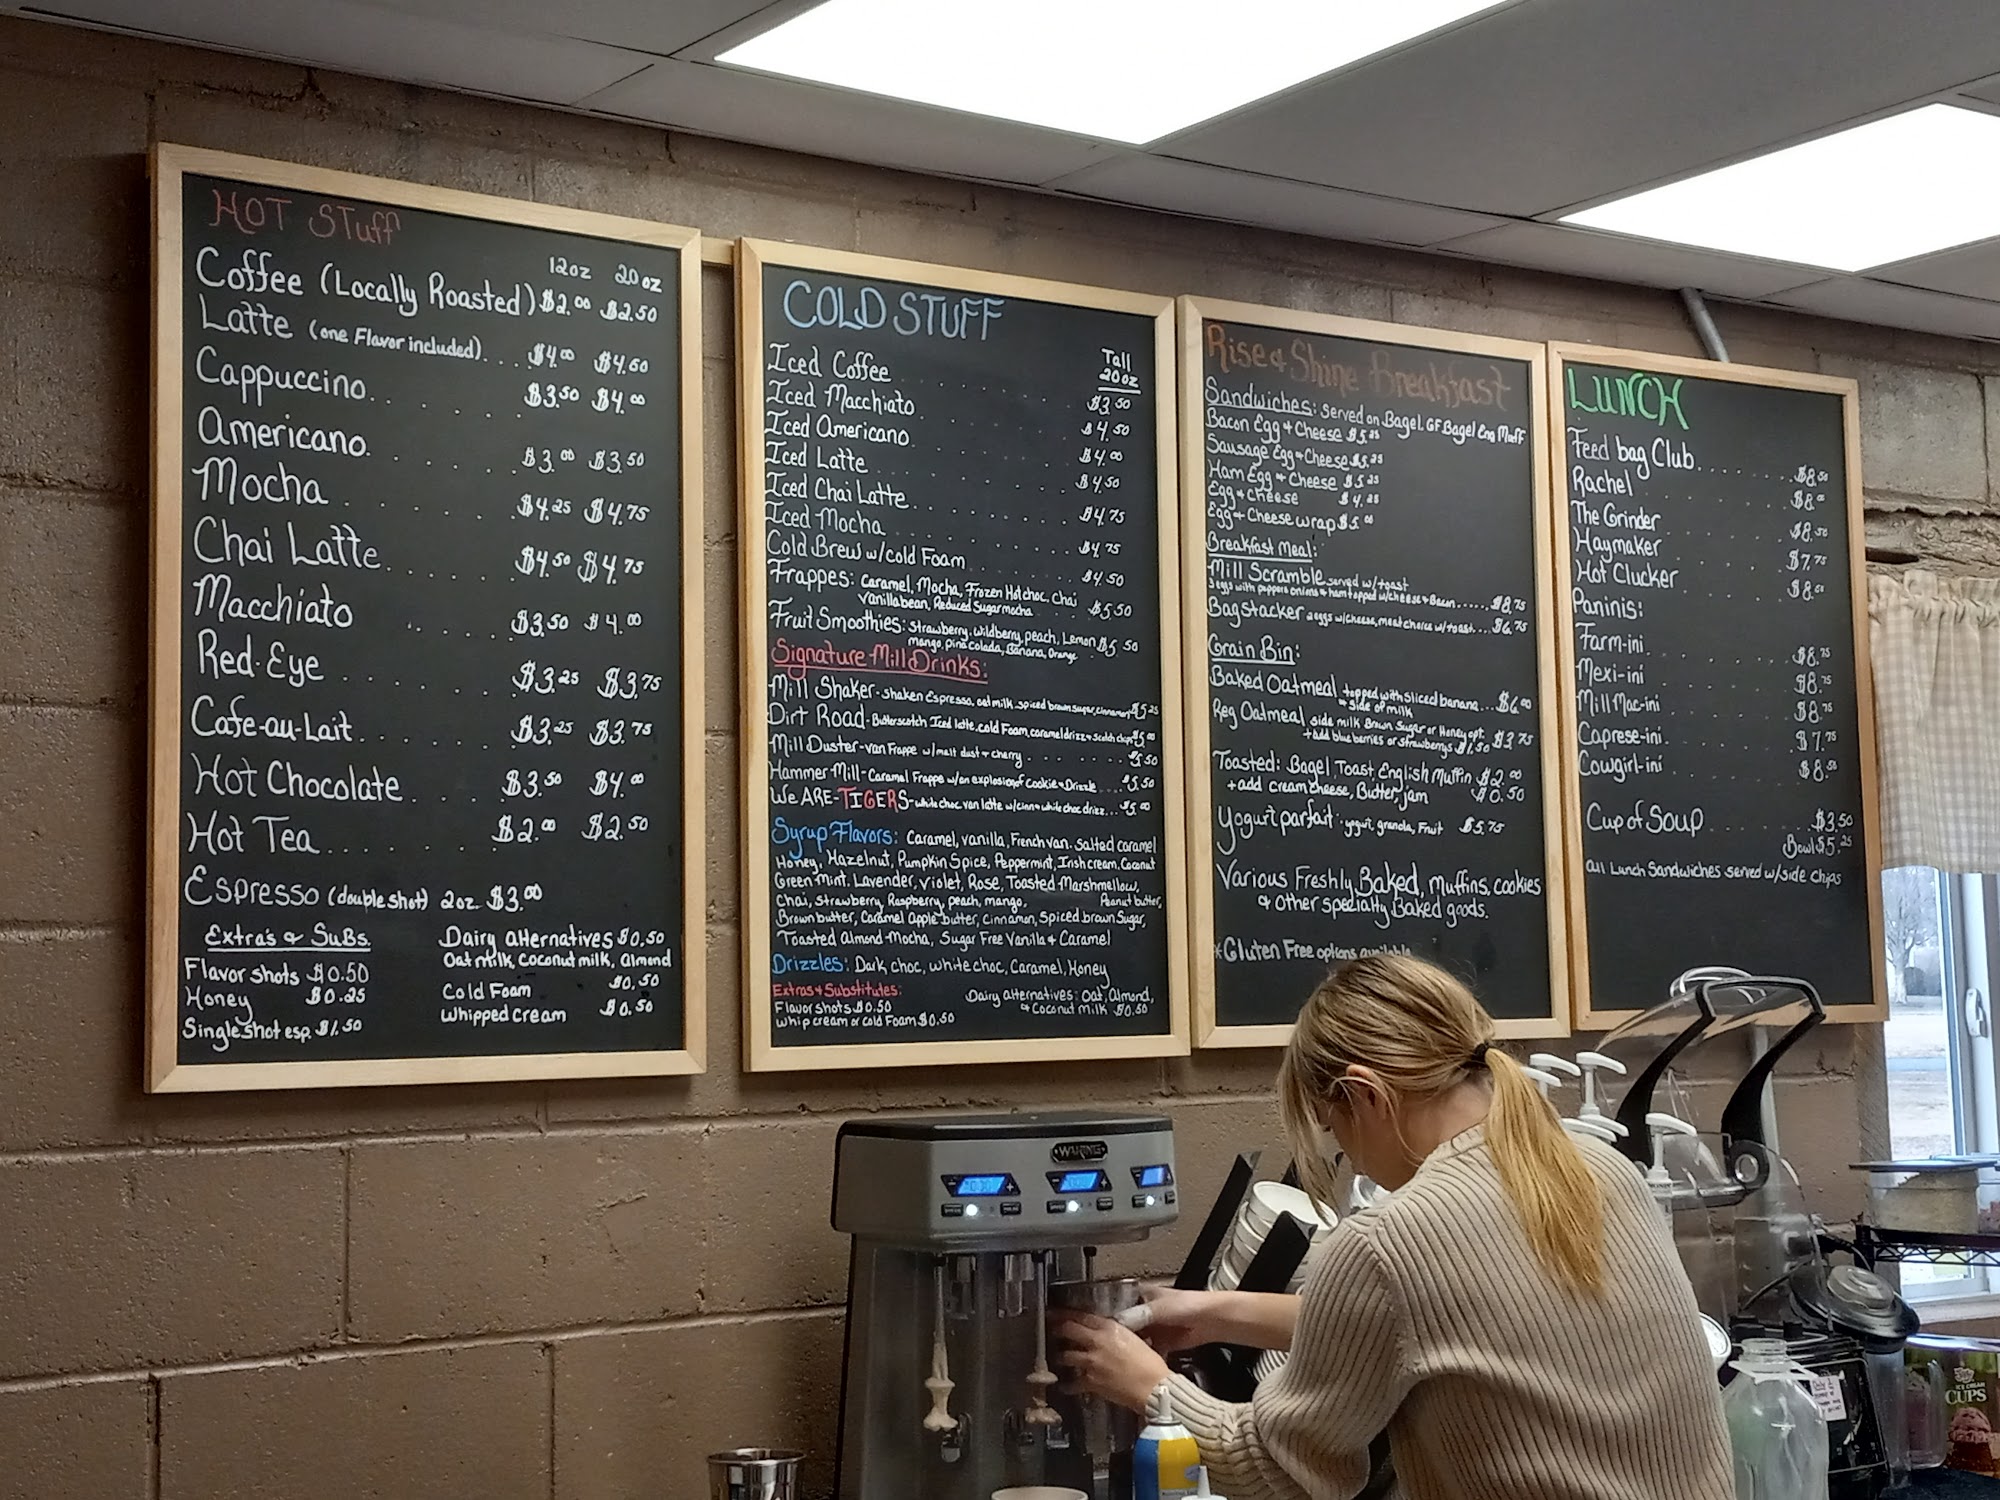 HOT STuff
12oz 20oz
Coffee (Locally Roasted) $2.00 $2.50
Latte (one Flavor included)... $4.00 $4.50
Cappuccino..... $3.50 $4.00
Americano...... $3.00 $3.50
Mocha..... $4.25 $4.75
Chai Latte.... $4.50 $4.75
Macchiato..... $3.50 $4.00
Red-Eye...... $3.25 $3.75
Cafe-au-Lait..... $3.25 $3.75
Hot Chocolate... $3.50 $4.00
Hot Tea...... $2.00 $2.50
Espresso (double shot) 2oz. $3.00
Extra's & SuBs.
Flavor shots $0.50
Honey $0.25
Single shot esp. $1.50
Dairy alternatives $0.50
Oat milk, coconut milk, almond
Cold Foam $0.50
Whipped cream $0.50
COLD STUFF
Tall
20oz
Iced Coffee $3.50
Iced Macchiato $4.50
Iced Americano $4.00
Iced Latte $4.50
Iced Chai Latte $4.75
Iced Mocha $4.75
Cold Brew w/cold Foam $4.50
Frappes: Caramel, Mocha, Frozen Hot choc, Chai
Vanilla bean, Reduced Sugar mocha $5.50
Fruit Smoothies: Strawberry, wildberry, peach, Lemon $5.50
mango, pina colada, Banana, Orange
Signature Mill Drinks:
Mill Shaker-shaken Espresso, oat milk, spiced brown sugar, cinnamon $5.25
Dirt Road-Butterscotch Iced latte, cold Foam, caramel drizz+scotch chips $5.00
Mill Duster-van Frappe w/malt dust + cherry $5.50
Hammer Mill-Caramel Frappe w/an explosion of Cookie+Drizzle $5.50
We ARE-TIGERS-white choc van latte w/cinn+white choc drizz... $5.00
Syrup Flavors: Caramel, vanilla, French van. salted caramel
Honey, Hazelnut, Pumpkin Spice, Peppermint, Irish cream, Coconut
Green mint, Lavender, Violet, Rose, Toasted Marshmellow,
Chai, Strawberry, Raspberry, peach, mango, Peanut butter,
Brown butter, Caramel Apple butter, Cinnamon, Spiced brown Sugar,
Toasted Almond Mocha, Sugar Free Vanilla & Caramel
Drizzles: Dark choc, white choc, Caramel, Honey
Extras & Substitutes:
Flavor shots $0.50
Whip cream or cold Foam $0.50
Dairy alternatives: Oat, Almond,
& Coconut milk $0.50
Rise & Shine Breakfast
Sandwiches: served on Bagel. GF Bagel Eng Muff
Bacon Egg & Cheese $5.25
Sausage Egg & Cheese $5.25
Ham Egg & Cheese $5.25
Egg & cheese $4.25
Egg & Cheese wrap $5.00
Breakfast Meal:
Mill Scramble served w/toast
3 eggs with peppers onions & ham topped w/cheese & Bacon...... $8.75
Bagstacker 2 eggs w/cheese, meat choice w/toast... $6.75
Grain Bin:
Baked Oatmeal topped with sliced banana... $6.00
& side of milk
Reg Oatmeal side milk Brown Sugar or Honey opt. $3.75
+ add blueberries or strawberrys $1.50
Toasted: Bagel, Toast, English Muffin $2.00
+ add cream cheese, Butter, jam $0.50
Yogurt parfait: yogurt, granola, Fruit $5.75
Various Freshly Baked, muffins, cookies
& other specialty Baked goods.
*Gluten Free options available
LUNCH
Feed bag Club.... $8.50
Rachel $8.00
The Grinder $8.50
Haymaker $7.75
Hot Clucker $8.50
Paninis:
Farm-ini $8.75
Mexi-ini $8.75
Mill Mac-ini $8.75
Caprese-ini $7.75
Cowgirl-ini $8.50
Cup of Soup $3.50
Bowl $5.25
all Lunch Sandwiches served w/side chips
WARING
ICE CREAM
CUPS